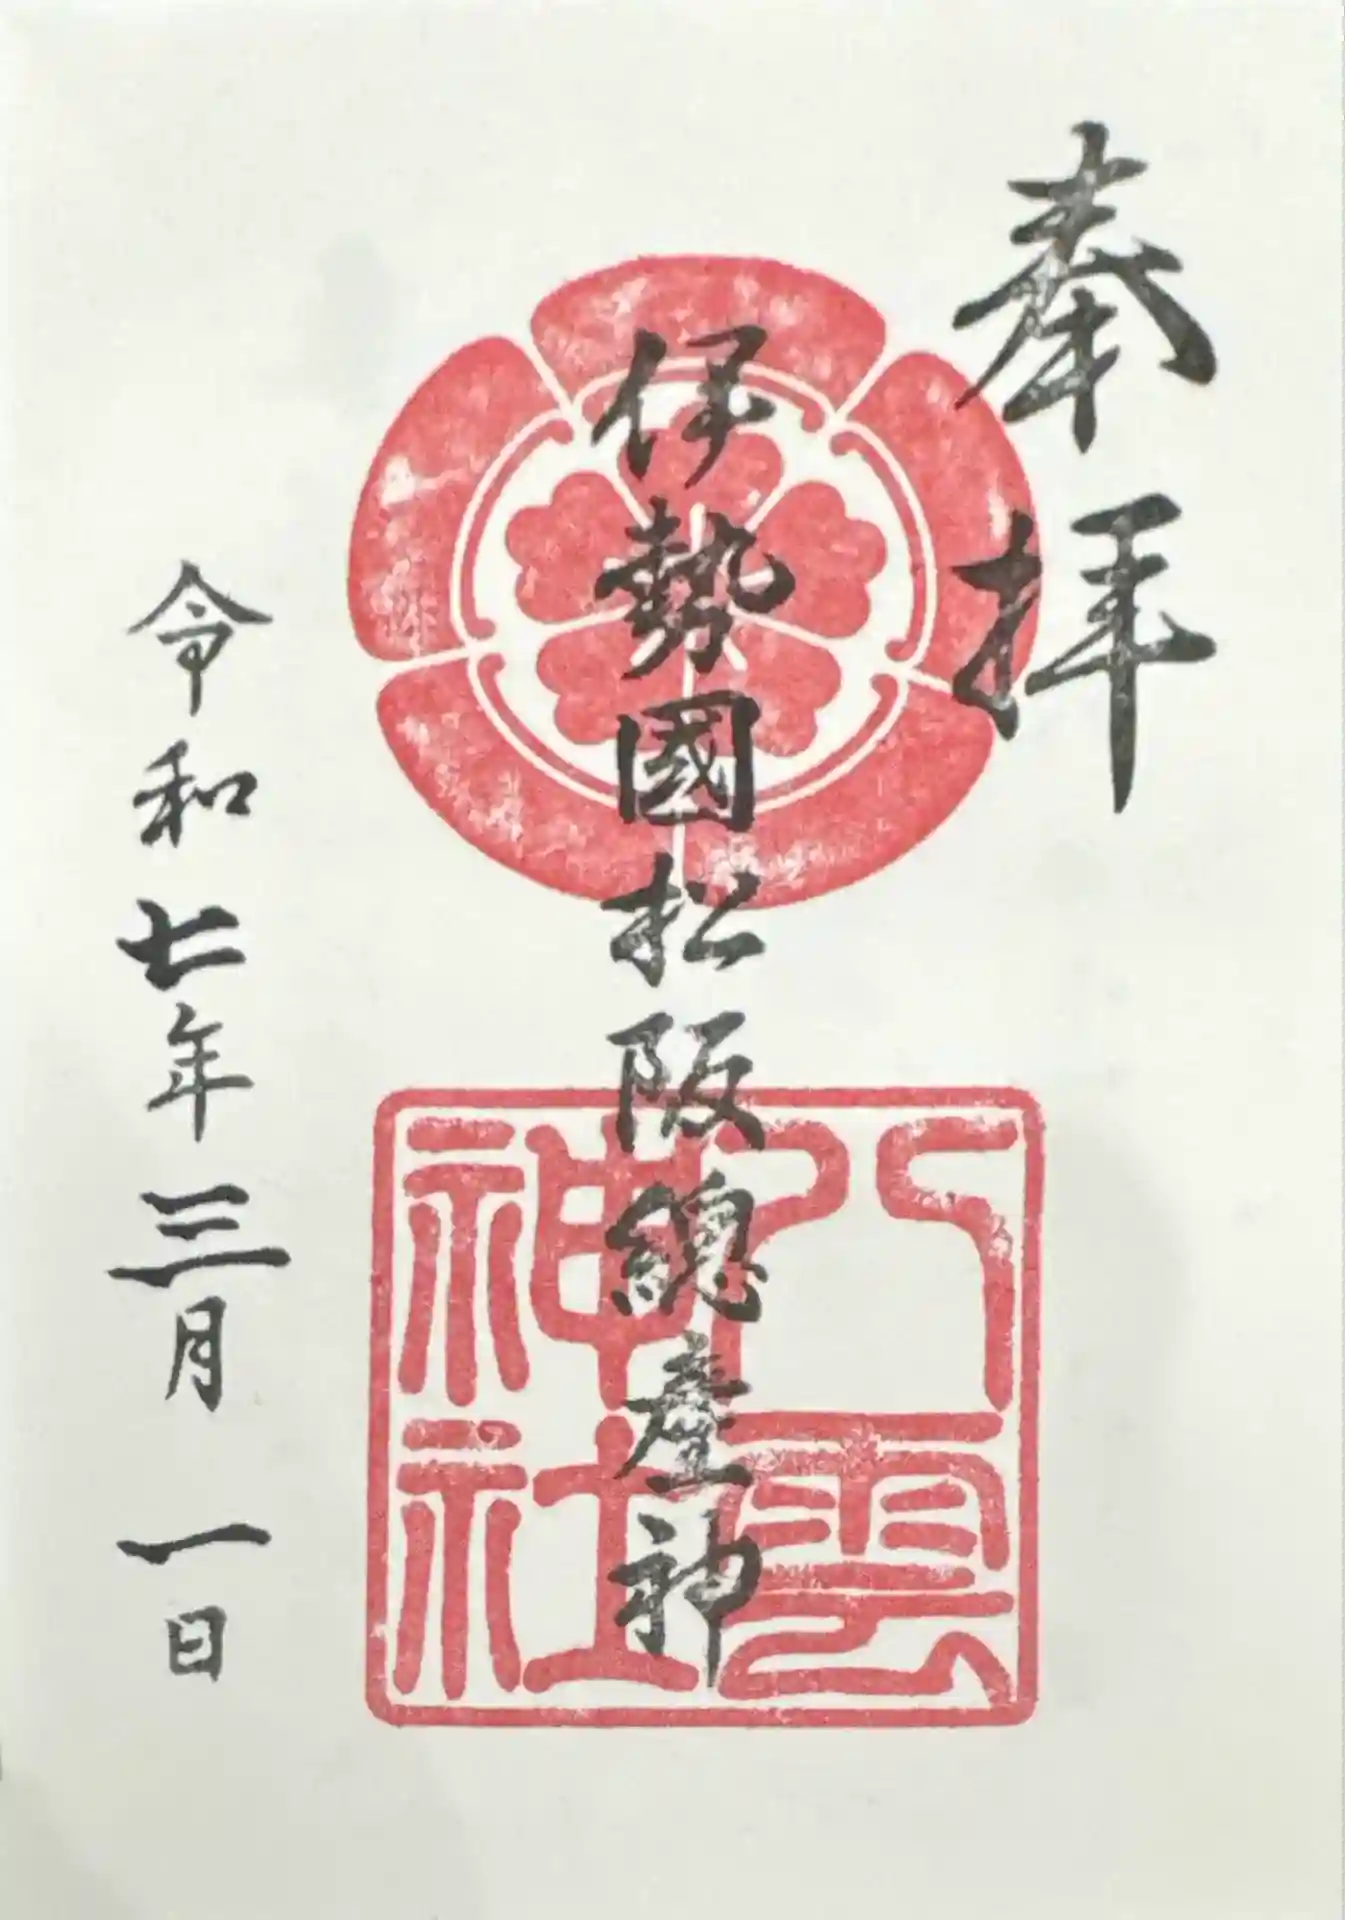 奉拝
伊勢國松阪總産神
八雲
神社
令和七年三月一日